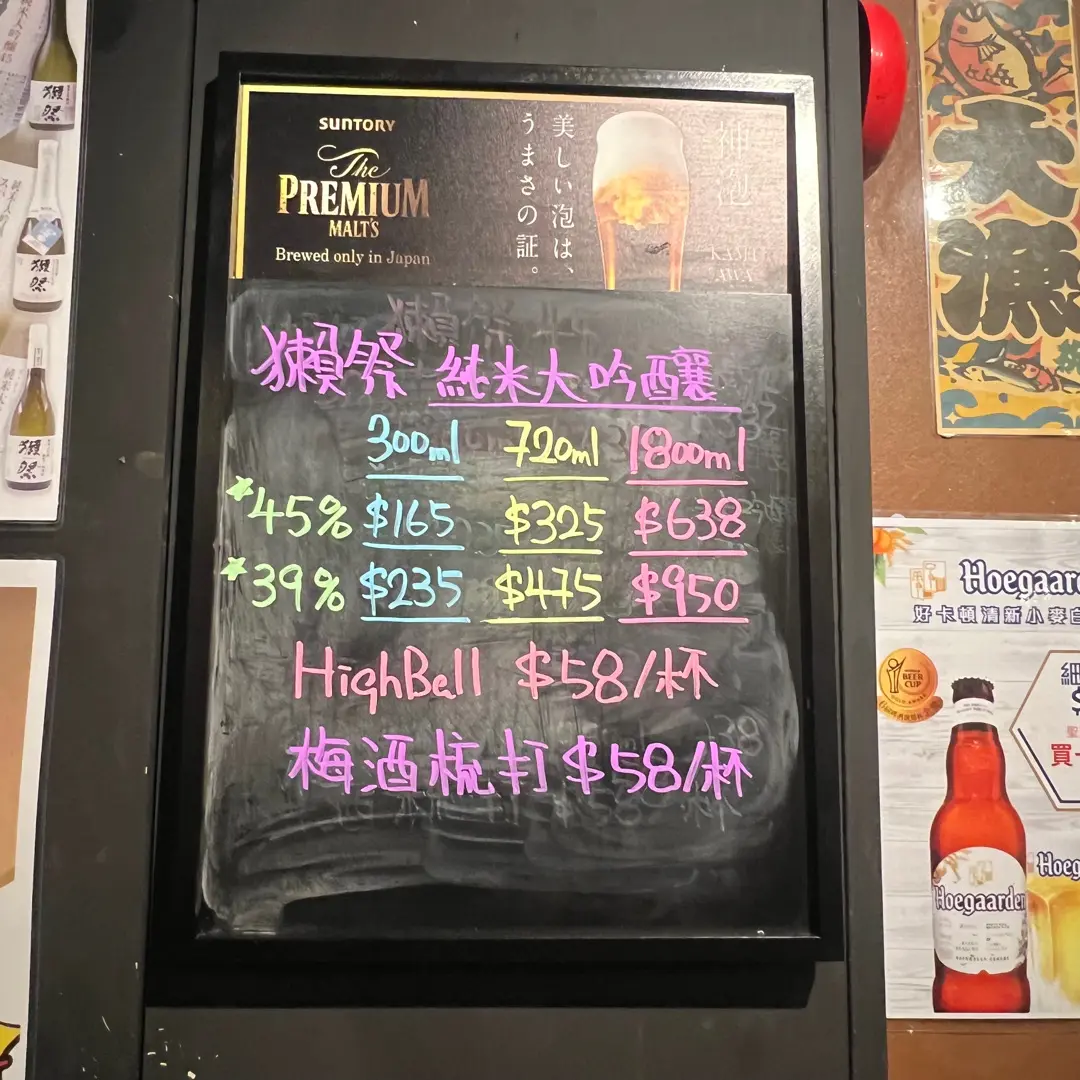 SUNTORY
The
PREMIUM
MALT'S
Brewed only in Japan
美しい泡は、
うまさの証。
神泡
獺祭 純米大吟釀
300ml 720ml 1800ml
45% $165 $325 $638
39% $235 $475 $950
HighBall $58/杯
梅酒梳打 $58/杯
獺祭
獺祭
獺祭
大漁
Hoegaarden
好卡頓清新小麥白
BEER
CUP
買一
Hoegaarden